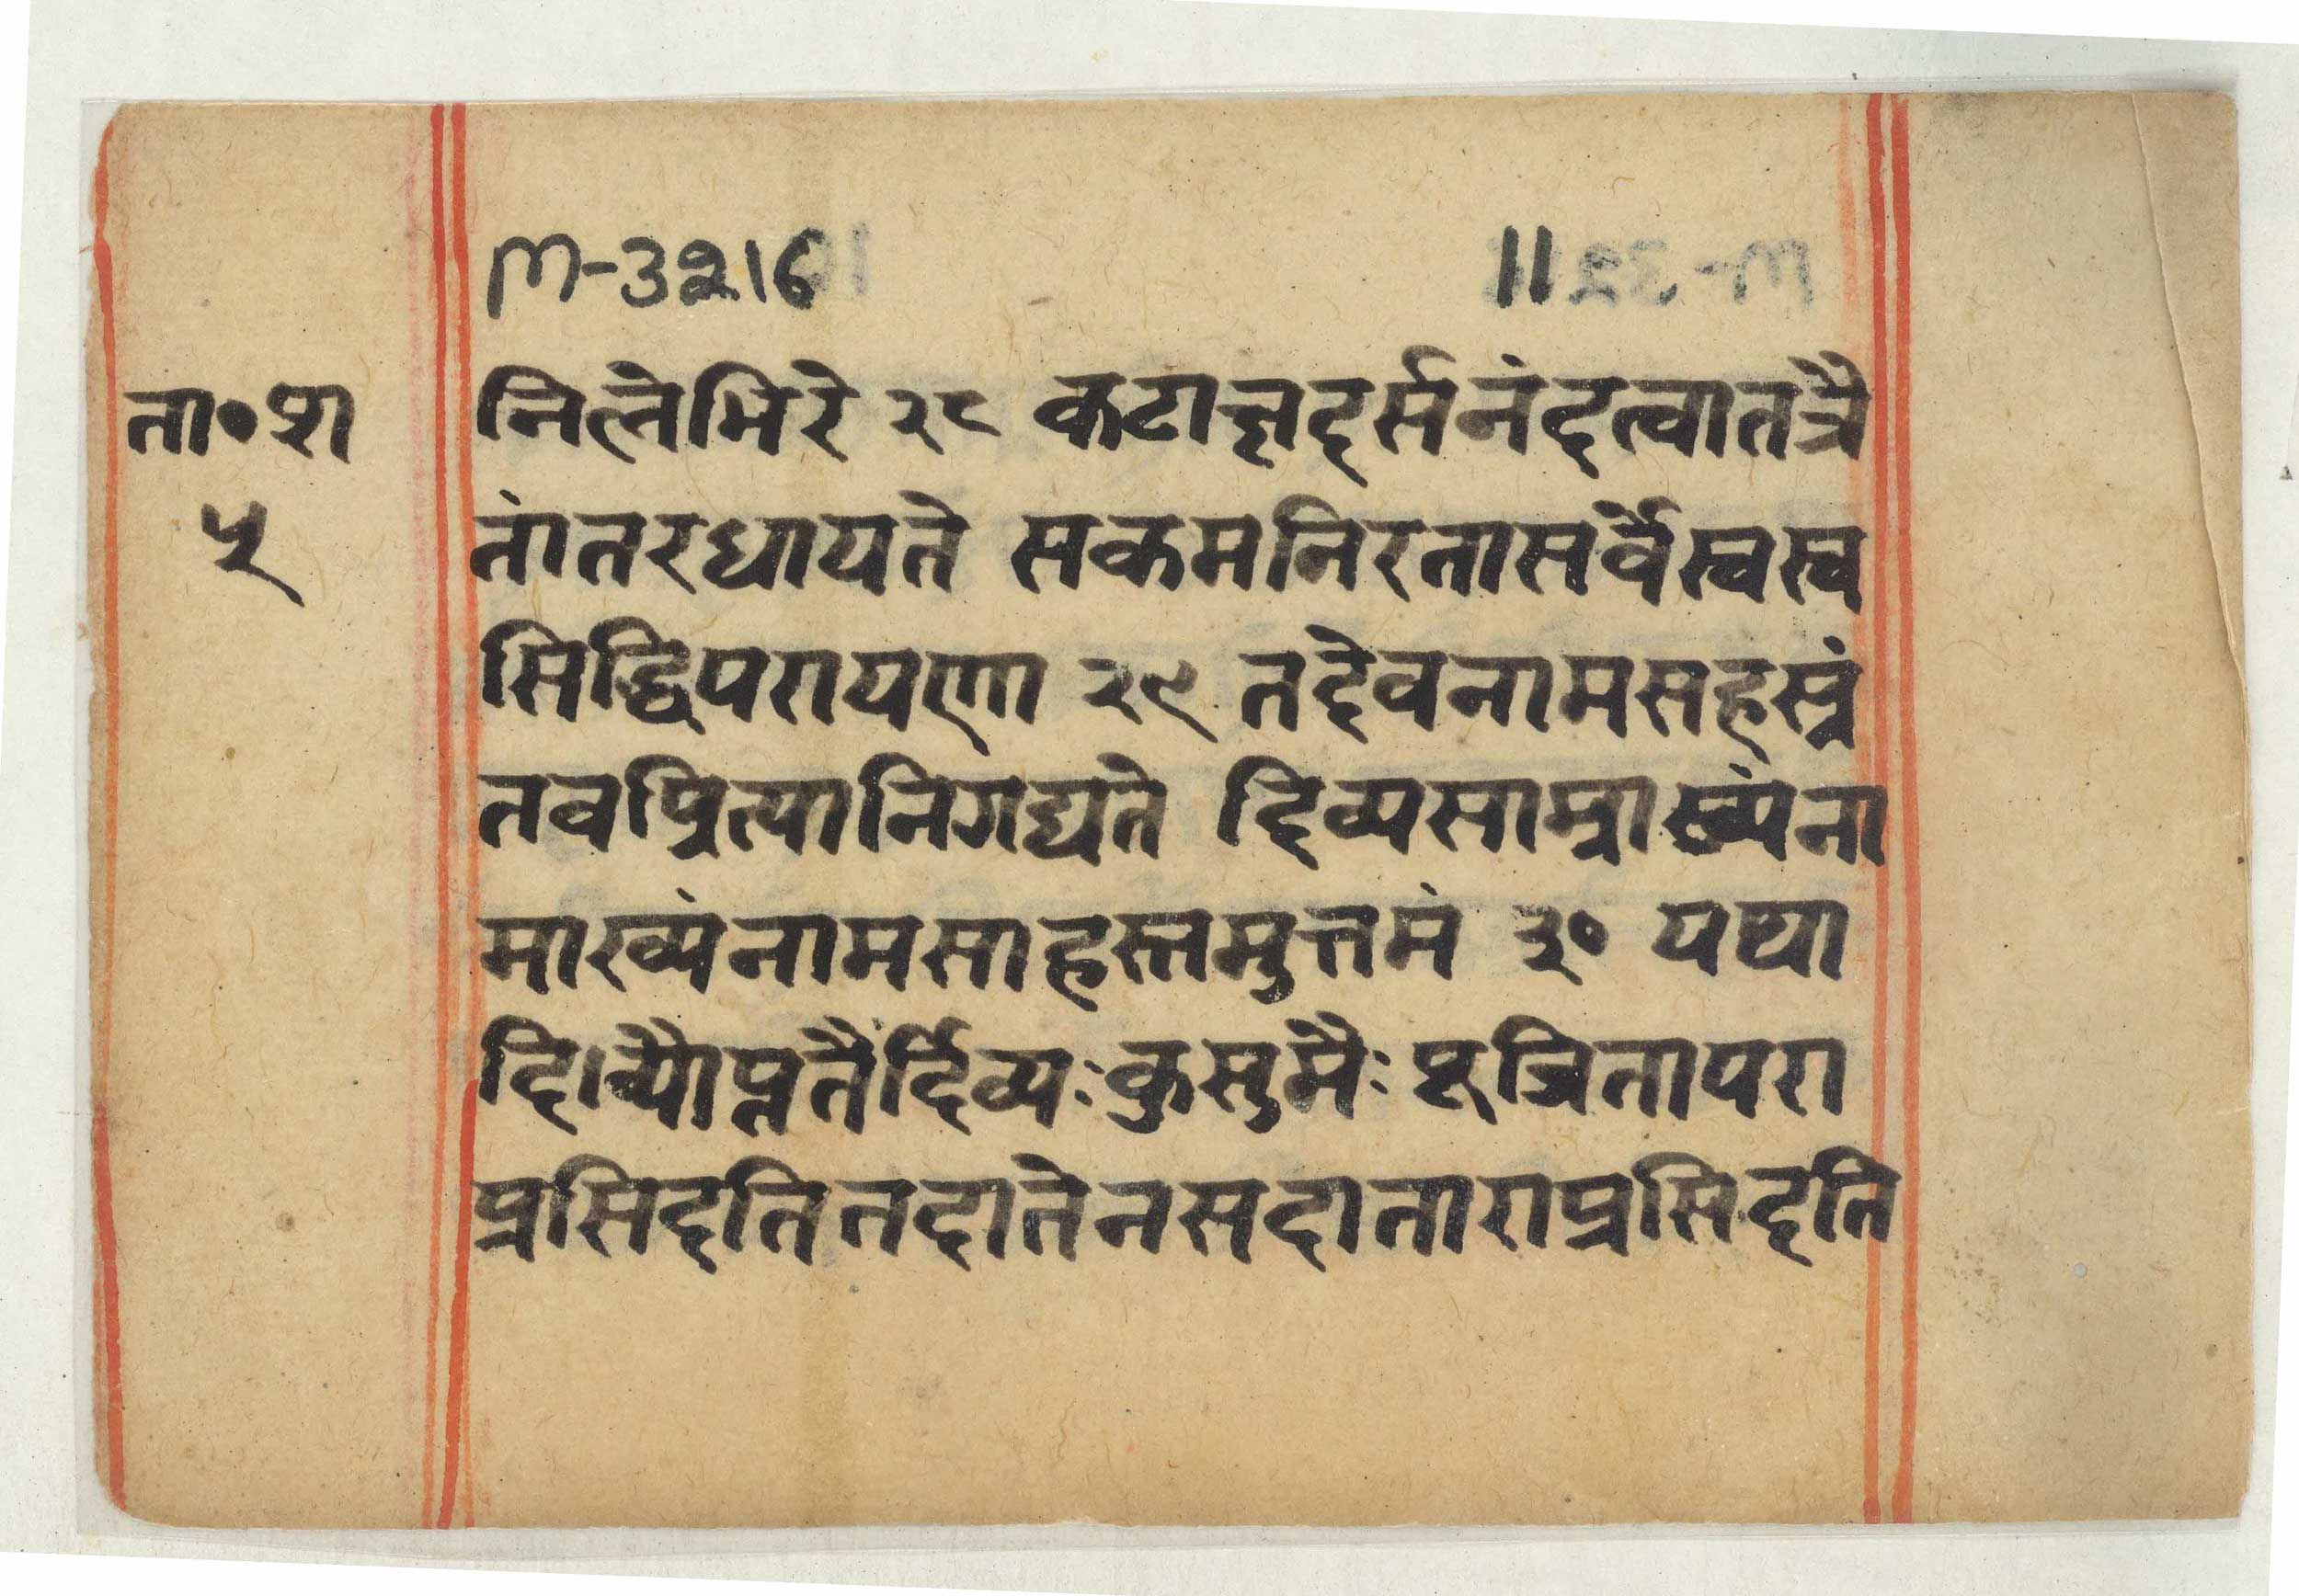 M-3216 11
ता॰श
५
निलेभिरे २८ कटाक्षदर्सनंदत्वातत्रै
तांतरधायते सकमनिरतासर्वेस्वस्व
सिद्धिपरायणा २९ तद्देवनामसहस्रं
तवप्रित्यानिगद्यते दिव्यसाम्राख्यंना
माख्यंनामसाहस्त्रमुत्तमं ३० यद्या
प्रसिदतितदातेनसदाताराप्रसिदति